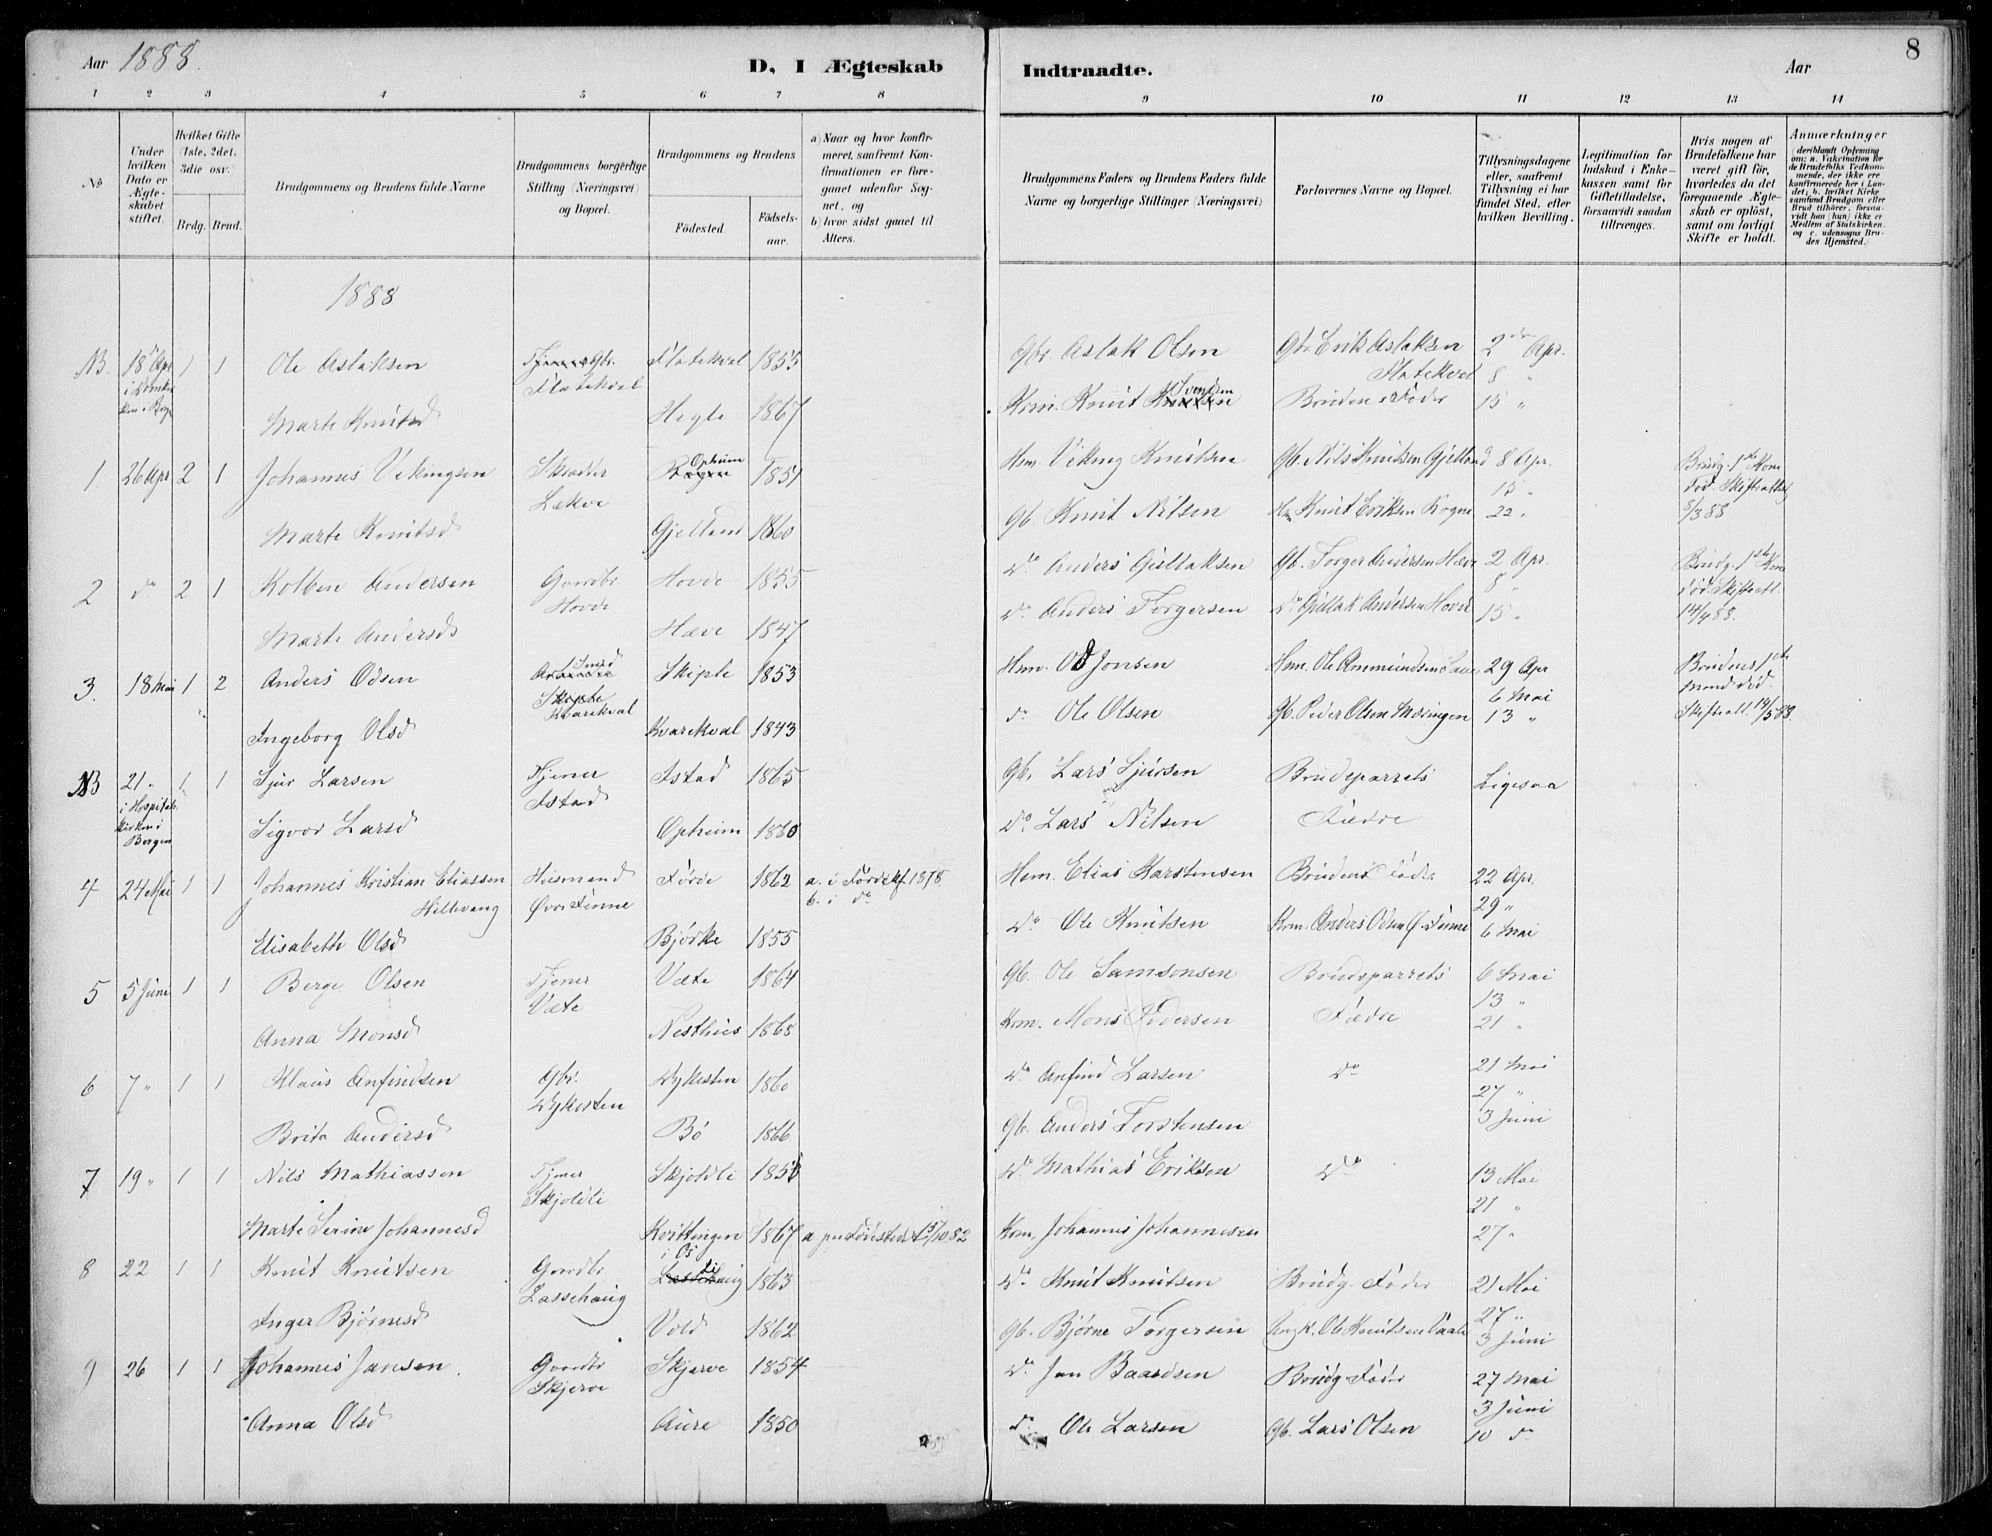 Aar 1888.
D, I Ægteskab Indtraadte.
Aar
8
1 2 3 4 5 6 7 8 9 10 11 12 13 14
No
Under hvilken Dato er Ægteskabet stiftet.
Hvilket Gifte (1ste, 2det, 3die osv.)
Brdg. Brud.
Brudgommens og Brudens fulde Navne
Brudgommens borgerlige Stilling (Næringsvei) og Bopæl.
Brudgommens og Brudens
Födested. Födselsaar.
a) Naar og hvor konfirmeret, saafremt Konfirmationen er foregaaet udenfor Sognet, og
b) hvor sidst gaaet til Alters.
Brudgommens Faders og Brudens Faders fulde Navne og borgerlige Stillinger (Næringsvei)
Forlovernes Navne og Bopæl.
Tillysningsdagene eller, saafremt Tillysning ei har fundet Sted, efter hvilken Bevilling.
Legitimation for Indskud i Enkekassen samt for Giftetilladelse, forsaavidt saadan tiltrænges.
Hvis nogen af Brudefolkene har været gift för, hvorledes da det foregaaende Ægteskab er oplöst, samt om lovligt Skifte er holdt.
Anmærkninger (deriblandt Oplysning om: a. Vakcination for de Brudefolks Vedkommende, der ikke ere konfirmerede her i Landet, b. hvilket Kirkesamfund Brudgom eller Brud tilhörer, forsaavidt han (hun) ikke er Medlem af Statskirken, og c. udensogns Brudes Hjemsted.)
1888
NB. 18 Apr 1 1 Ole Aslaksen Gbr. Flatekval Flatekval 1855 Gbr. Aslak Olsen Gbr Erik Aslaksen Flatekval 2 Apr. 8 "
Marte Knutsd Hegle 1867 Knut Svendsen Brudens Fader 15 "
1 26 Apr 2 1 Johannes Vikingsen Skrædder Lekve Opheim 1851 Hsm. Viking Knutsen Gb. Nils Knutsen Gjelland 8 Apr. 15 " Brudg. 1ste Kone død. Skifteattest 8/3 88
Marte Knutsd Gjelland 1860 Gb. Knut Nilsen Knut Eriksen Rogne 22 "
2 do 2 1 Kolben Andersen Gaardbr Hovde Hovde 1855 do Anders Gjellaksen Gb. Torger Andersen Hæve 2 Apr. 8 " Brudg. 1ste Kone død. Skifteatt. 14/4 88.
Marte Andersd Hæve 1847 do. Anders Torgersen do Andersen Hovde 15 "
3. 18 Mai 1 2 Anders Odsen Kvarekval Skiple 1853 Hsm. Od Jonsen Hsm. Ole Ammundsen 29 Apr 6 Mai Brudens 1ste Mand død
Ingeborg Olsd Kvarekval 1843 do Ole Olsen Gb. Peder Olsen Mæringen 13 " Skifteatt. 14/5 88.
NB 21 " i Hospitalskirken i Bergen 1 1 Sjur Larsen Tjener Istad Istad 1865 Gb. Lars Sjursen Brudeparrets Fædre Ligesaa
Sigvor Larsd Opheim 1860 do Lars Nilsen
4 24 Mai 1 1 Johannes Kristian Eliassen Husmand Øvre Finne Førde 1862 a. i Førde 1878 b. i do Hsm. Elias Karstensen Brudens Fader 22 Apr. 29 "
Elisabeth Olsd Bjørke 1855 do Ole Knutsen Kom. Anders Odsen Ø. Finne 6 Mai
5 5 Juni 1 1 Berge Olsen Tjener Væte Væte 1864 Gb. Ole Samsonsen Brudeparrets Fædre 6 Mai 13 "
Anna Monsd Nesthus 1868 Kom. Mons Pedersen 21 "
6 7 " 1 1 Klaus Anfindsen Gbr. Dykesten Dykesten 1860 do Anfind Larsen do 21 Mai 27 "
Brita Andersd Bø 1866 Gb. Anders Torstensen 3 Juni
7 19 " 1 1 Nils Mathiassen Tjener Skjoldli Skjoldli 1858 do Mathias Eriksen do 13 Mai 21 "
Marte Serine Johannesd Kvittingen i Os 1867 a paa Fødestedet 15/10 82 Kom. Johannes Johannesen 27 "
8 22 1 1 Knut Knutsen Gaardbr Lassehaug 1863 do Knut Knutsen Brudg. Fader 21 Mai 27 "
Inger Bjørnesd Vold 1862 Gb. Bjørne Torgersen Ungk. Ole Knutsen 3 Juni
9 26 1 1 Johannes Jansen Gaardbr Skjerve Skjerve 1854 do. Jan Baardsen Brudg. Fader 27 Mai 3 Juni
Anna Olsd Aure 1850 do Ole Larsen Gb. Lars Olsen 10 do